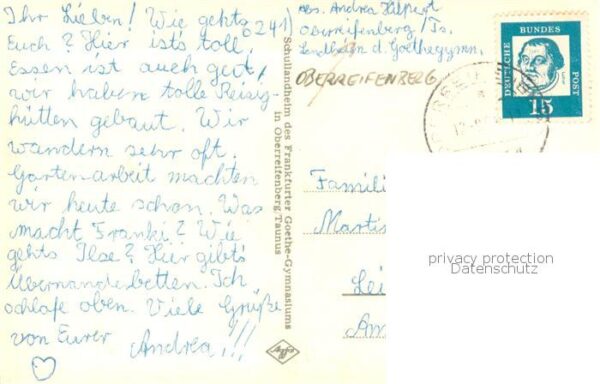 Ihr Lieben! Wie gehts
Euch? Hier ists toll.
Essen ist auch gut,
wir haben tolle Reisig-
hütten gebaut. Wir
wandern sehr oft.
Gartenarbeit machten
wir heute schon. Was
macht Franki? Wie
gehts Ilse? Hier gibts
Übernanderbetten. Ich
schlafe oben. Viele Grüße
von Eurer
Andrea!!!
0241)
Schullandheim des Frankfurter Goethe-Gymnasiums
in Oberreifenberg/Taunus
Agfa
Abs. Andrea
Oberreifenberg/Ts.
Landheim d. Goethegymn.
OBERREIFENBERG
DEUTSCHE BUNDES POST
15
Famili
Martis
Lei
Am
privacy protection
Datenschutz